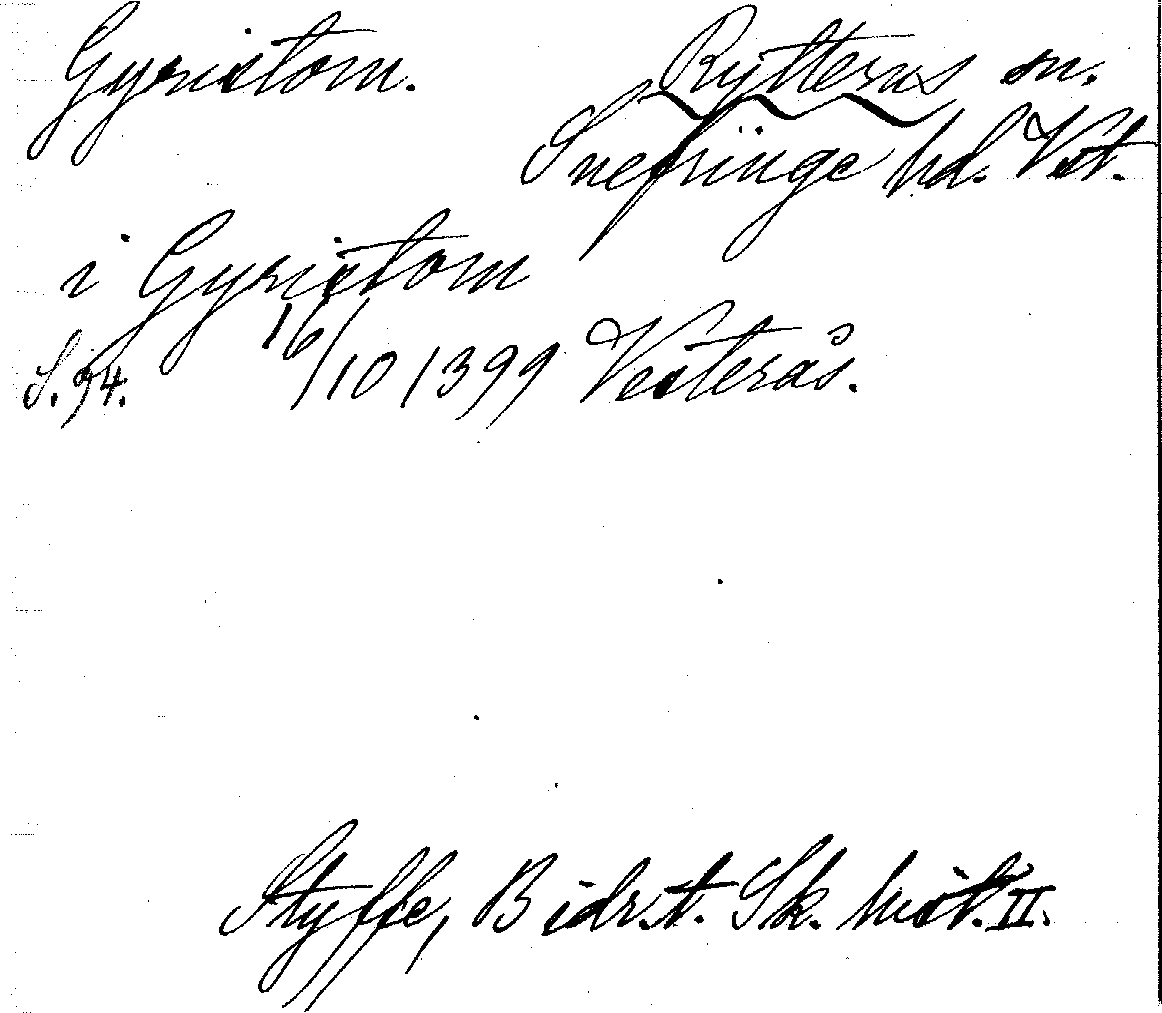 Gyristom. Rytterns sn.
Snefringe hd. Vst.
i Gyristom
S. 94. 16/10 1399 Vesterås.
Styffe, Bidr. t. Sk. hist. II.